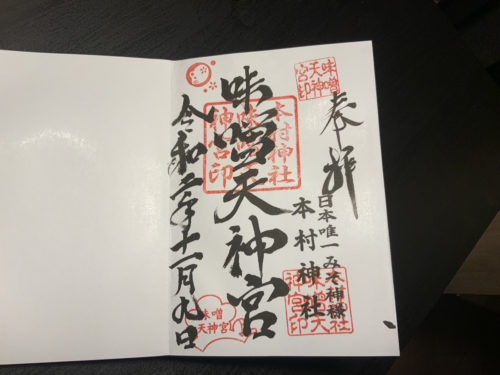 味噌
天神
宮印
奉拝
日本唯一みそ神様
本村神社
本村神社
味噌天
神宮印
味噌天神宮
本村神社
味噌天
神宮印
令和二年十一月九日
味噌
天神宮